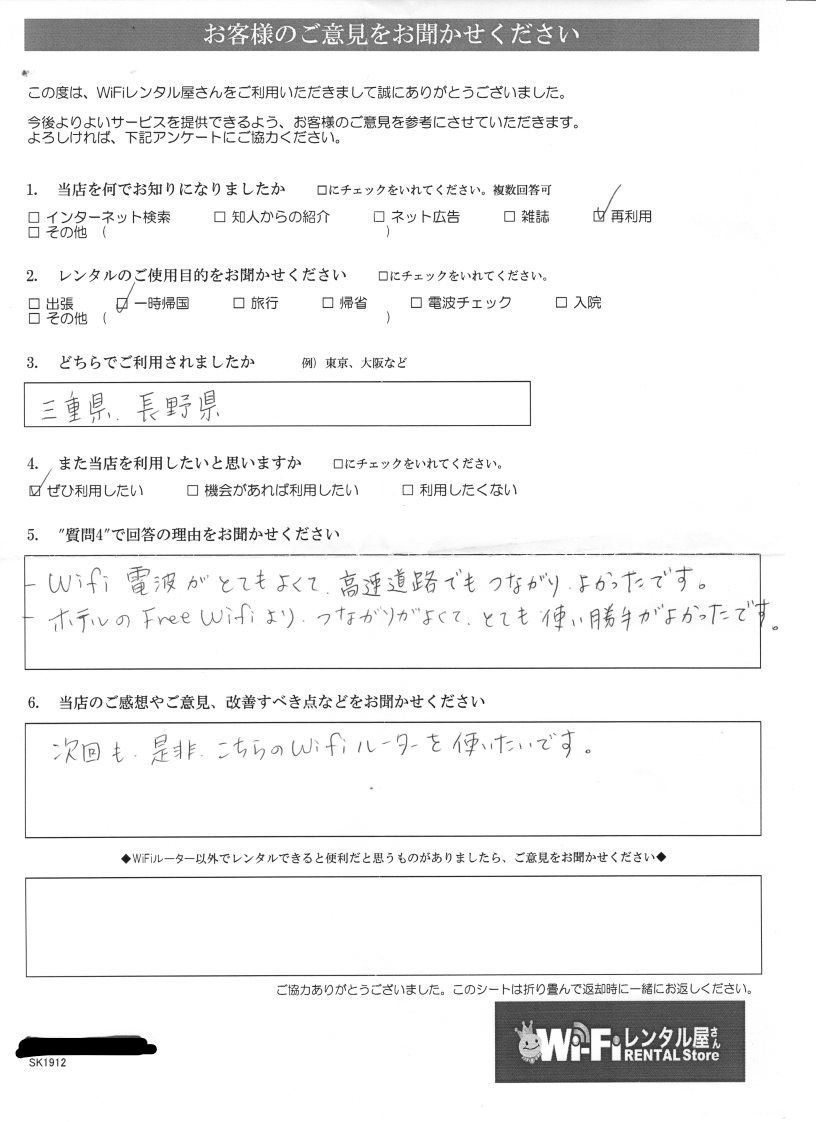 お客様のご意見をお聞かせください
この度は、WiFiレンタル屋さんをご利用いただきまして誠にありがとうございました。
今後よりよいサービスを提供できるよう、お客様のご意見を参考にさせていただきます。
よろしければ、下記アンケートにご協力ください。
1. 当店を何でお知りになりましたか □にチェックをいれてください。複数回答可
□ インターネット検索 □ 知人からの紹介 □ ネット広告 □ 雑誌 ☑ 再利用
□ その他 ( )
2. レンタルのご使用目的をお聞かせください □にチェックをいれてください。
□ 出張 ☑ 一時帰国 □ 旅行 □ 帰省 □ 電波チェック □ 入院
□ その他 ( )
3. どちらでご利用されましたか 例) 東京、大阪など
三重県、長野県
4. また当店を利用したいと思いますか □にチェックをいれてください。
☑ ぜひ利用したい □ 機会があれば利用したい □ 利用したくない
5. "質問4"で回答の理由をお聞かせください
- Wifi 電波がとてもよくて、高速道路でもつながり、よかったです。
- ホテルのFree Wifiより、つながりがよくて、とても使い勝手がよかったです。
6. 当店のご感想やご意見、改善すべき点などをお聞かせください
次回も、是非、こちらのWifiルーターを使いたいです。
◆WiFiルーター以外でレンタルできると便利だと思うものがありましたら、ご意見をお聞かせください◆
ご協力ありがとうございました。このシートは折り畳んで返却時に一緒にお返しください。
SK1912
Wi-Fiレンタル屋さん
RENTAL Store